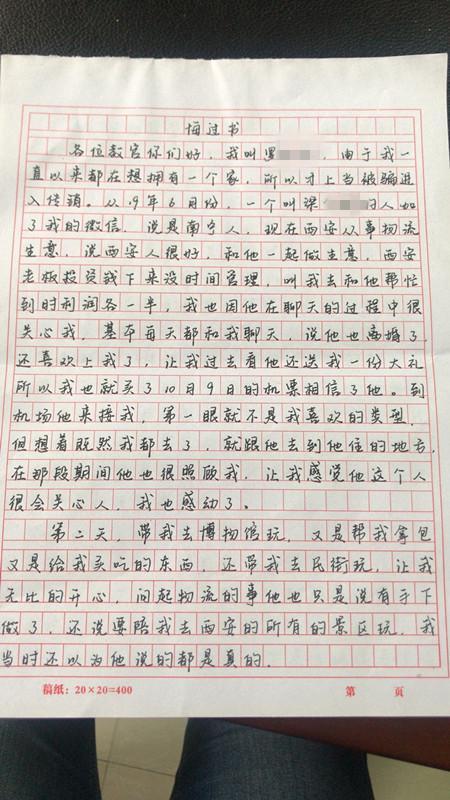 悔过书
各位教官你们好，我叫 ，由于我一
直以来都在想拥有一个家，所以才上当被骗进
入传销。从19年6月份，一个叫 的人加
了我的微信，说是南宁人，现在西安从事物流
生意，说西安人很好，和他一起做生意，西安
老板投资钱下来没时间管理，叫我去和他帮忙
到时利润各一半，我也因他在聊天的过程中很
关心我，基本每天都和我聊天，说他也离婚了，
还喜欢上我了，让我过去看他还送我一份大礼
所以我也就买了10月9日的机票相信了他。到
机场他来接我，第一眼就不是我喜欢的类型，
但想着既然我都去了，就跟他去到他住的地方，
在那段期间他也很照顾我，让我感觉他这个人
很会关心人，我也感动了。
第二天，带我去博物馆玩，又是帮我拿包
又是给我买吃的东西，还带我去民街玩，让我
无比的开心，问起物流的事他也只是说有手下
做了，还说要陪我去西安的所有的景区玩，我
当时还以为他说的都是真的。
稿纸：20×20=400 第 页